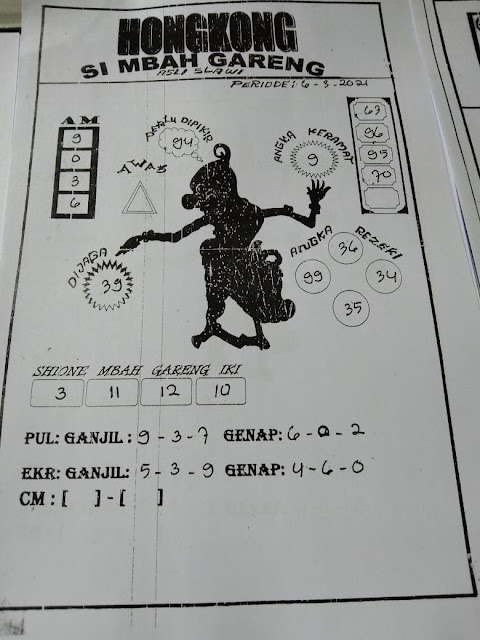 HONGKONG
SI MBAH GARENG
ASLI SLAWI
PERIODE: 6-3-2021
AM
9
0
3
6
PERLU DIPIKIR
94
AWAS
ANGKA KERAMAT
9
63
96
95
70
DIJAGA
39
ANGKA REZEKI
36
99
34
35
SHIONE MBAH GARENG IKI
3 11 12 10
PUL: GANJIL: 9-3-7 GENAP: 6-0-2
EKR: GANJIL: 5-3-9 GENAP: 4-6-0
CM: [ ]-[ ]